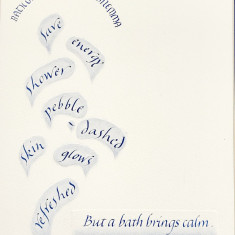 save
energy
shower
pebble
dashed
skin
glows
refreshed
But a bath brings calm.